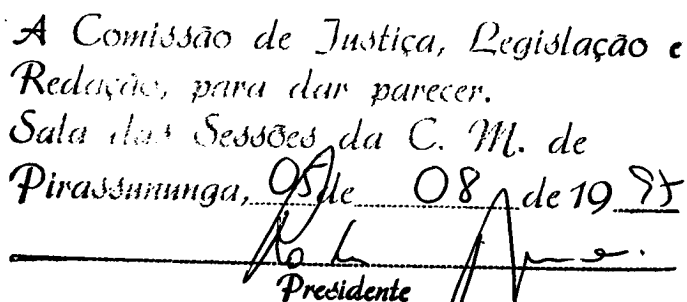 A Comissão de Justiça, Legislação e
Redação, para dar parecer.
Sala das Sessões da C. M. de
Pirassununga, 05 de 08 de 19 97
Presidente